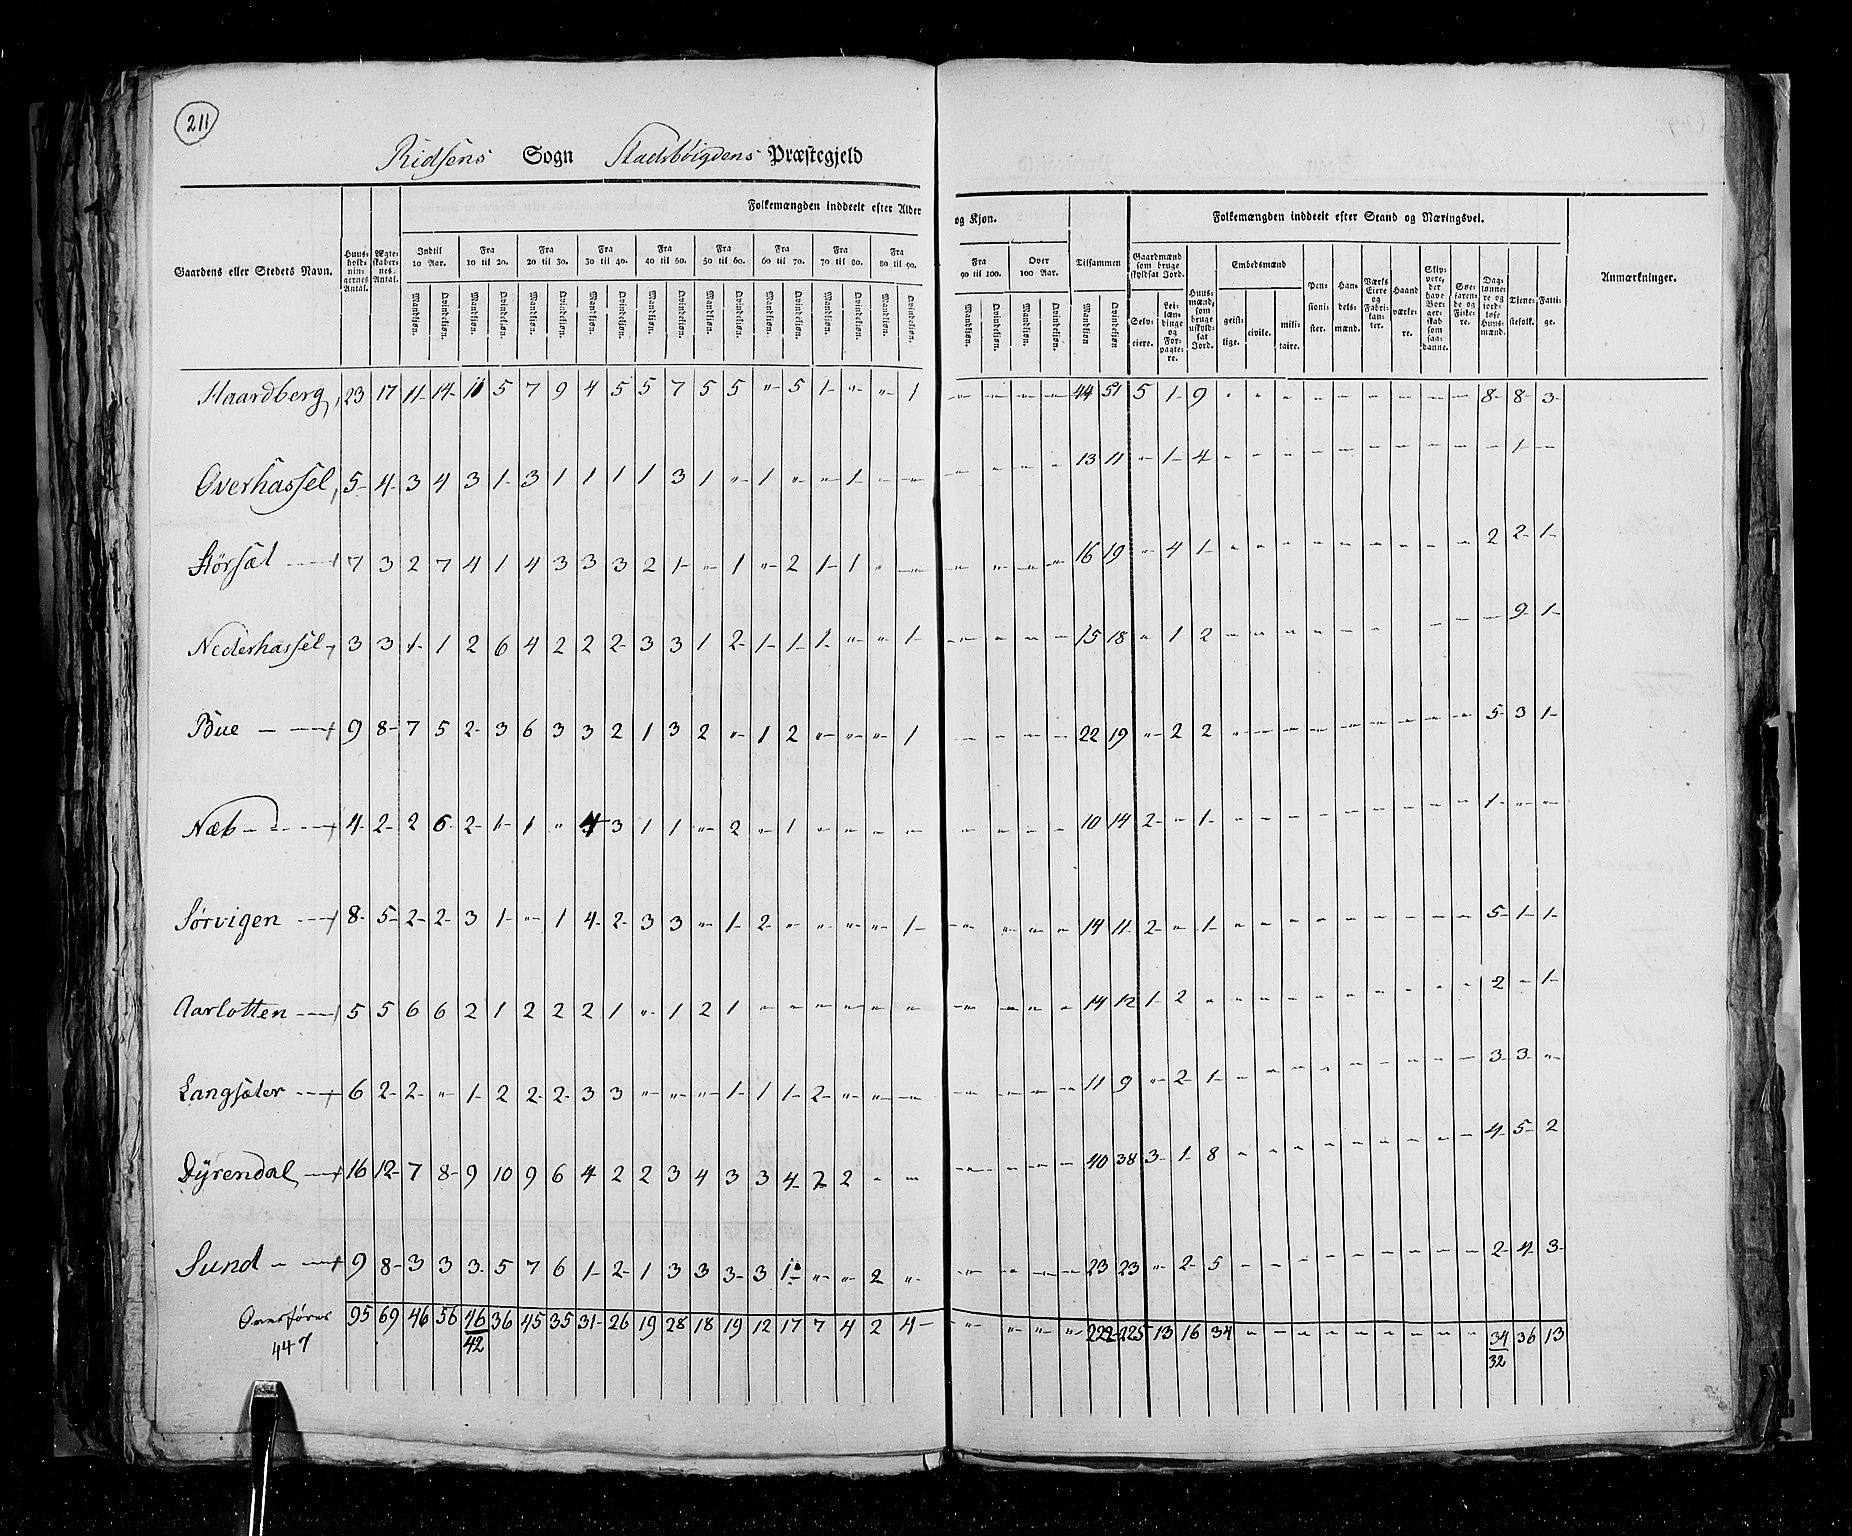 211
Ridsens Sogn Stadsbøigdens Præstegjeld
Folkemængden inddeelt efter Alder og Kjøn. Tilsammen Folkemængden inddeelt efter Stand og Næringsvei. Anmærkninger.
Gaardens eller Stedets Navn. Huus-hold-nin-gernes Antal. Ægte-skaber-nes Antal. Indtil 10 Aar. Fra 10 til 20. Fra 20 til 30. Fra 30 til 40. Fra 40 til 50. Fra 50 til 60. Fra 60 til 70. Fra 70 til 80. Fra 80 til 90. Fra 90 til 100. Over 100 Aar.
Gaardmænd som bruge skyldsat Jord. Huus-mænd, som bruge uskyld-sat Jord. Embedsmænd Pen-sioni-ster. Han-dels-mænd. Værks Eiere og Fabri-kan-ter. Haand værke-re. Skip-pere, der have Bor-ger-skab som saa-danne. Søe-farende og Fiske-re. Dag-lønne-re og jord-løse Huus-mænd. Tjene-stefolk. Fatti-ge.
Mandkjøn. Qvindekjøn. Mandkjøn. Qvindekjøn. Mandkjøn. Qvindekjøn. Mandkjøn. Qvindekjøn. Mandkjøn. Qvindekjøn. Mandkjøn. Qvindekjøn. Mandkjøn. Qvindekjøn. Mandkjøn. Qvindekjøn. Mandkjøn. Qvindekjøn. Mandkjøn. Qvindekjøn. Mandkjøn. Qvindekjøn. Mandkjøn Qvindekjøn. Selv-eiere. Lei-læn-dinge og For-pagte-re. geist-lige. civile. mili-taire.
Haardberg, 23 17 11 14 11 5 7 9 4 5 5 7 5 5 " 5 1 " " 1 " " " " 44 51 5 1 9 " " " " " " " " " 8 8 3
Overhassel, 5 4 3 4 3 1 3 1 1 1 1 3 1 " 1 " " 1 " " " " " " 13 11 " 1 4 " " " " " " " " " " 1 "
Størsæt 7 3 2 7 4 1 4 3 3 3 2 1 " 1 " 2 1 1 " " " " " " 16 19 " 4 1 " " " " " " " " " 2 2 1
Nederhassel 3 3 1 1 2 6 4 2 2 2 3 3 1 2 1 1 1 " " 1 " " " " 15 18 " 1 2 " " " " " " " " " 9 1
Bue 9 8 7 5 2 3 6 3 3 2 1 3 2 " 1 2 " " " 1 " " " " 22 19 " 2 2 " " " " " " " " " 5 3 1
Næb 4 2 2 6 2 1 1 " 4 3 1 1 " 2 " 1 " " " " " " " " 10 14 2 " 1 " " " " " " " " " 1 " "
Sørvigen 8 5 2 2 3 1 " 1 4 2 3 3 " 1 2 " " " " 1 " " " " 14 11 2 " 1 " " " " " " " " " 5 1 1
Aarlotten 5 5 6 6 2 1 2 2 2 1 " 1 2 1 " " " " " " " " " " 14 12 1 2 " " " " " " " " " " 2 " 1
Langsæter 6 2 2 " 1 2 2 2 3 3 " " " 1 1 1 2 " " " " " " " 11 9 " 2 1 " " " " " " " " " 3 3 "
Dÿrendal 16 12 7 8 9 10 9 6 4 2 2 3 4 3 3 4 2 2 " " " " " " 40 38 3 1 8 " " " " " " " " " 4 5 2
Sund 9 8 3 3 3 5 7 6 1 2 1 3 3 3 3 1 " " 2 " " " " " 23 23 " 2 5 " " " " " " " " " 2 4 3
Overføres 95 69 46 56 46 36 45 35 31 26 19 28 18 19 12 17 7 4 2 4 " " " " 222 225 13 16 34 " " " " " " " " " 34 36 13
447 42 32